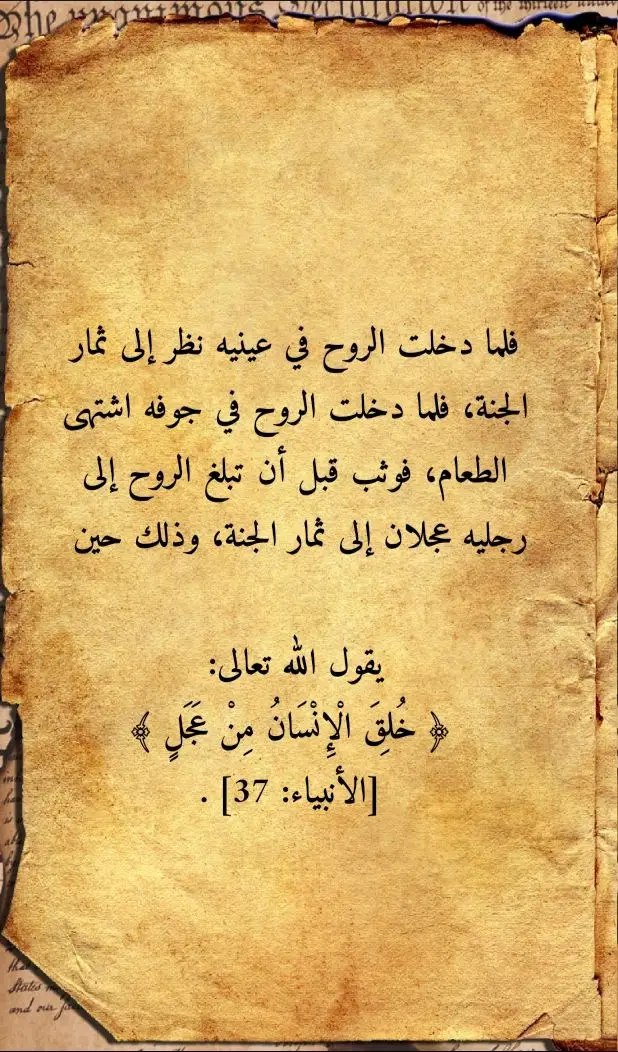 The unanimous Declaration of the thirteen united
فلما دخلت الروح في عينيه نظر إلى ثمار
الجنة، فلما دخلت الروح في جوفه اشتهى
الطعام، فوثب قبل أن تبلغ الروح إلى
رجليه عجلان إلى ثمار الجنة، وذلك حين
يقول الله تعالى:
﴿ خُلِقَ الْإِنْسَانُ مِنْ عَجَلٍ ﴾
[الأنبياء: 37] .
States
and our